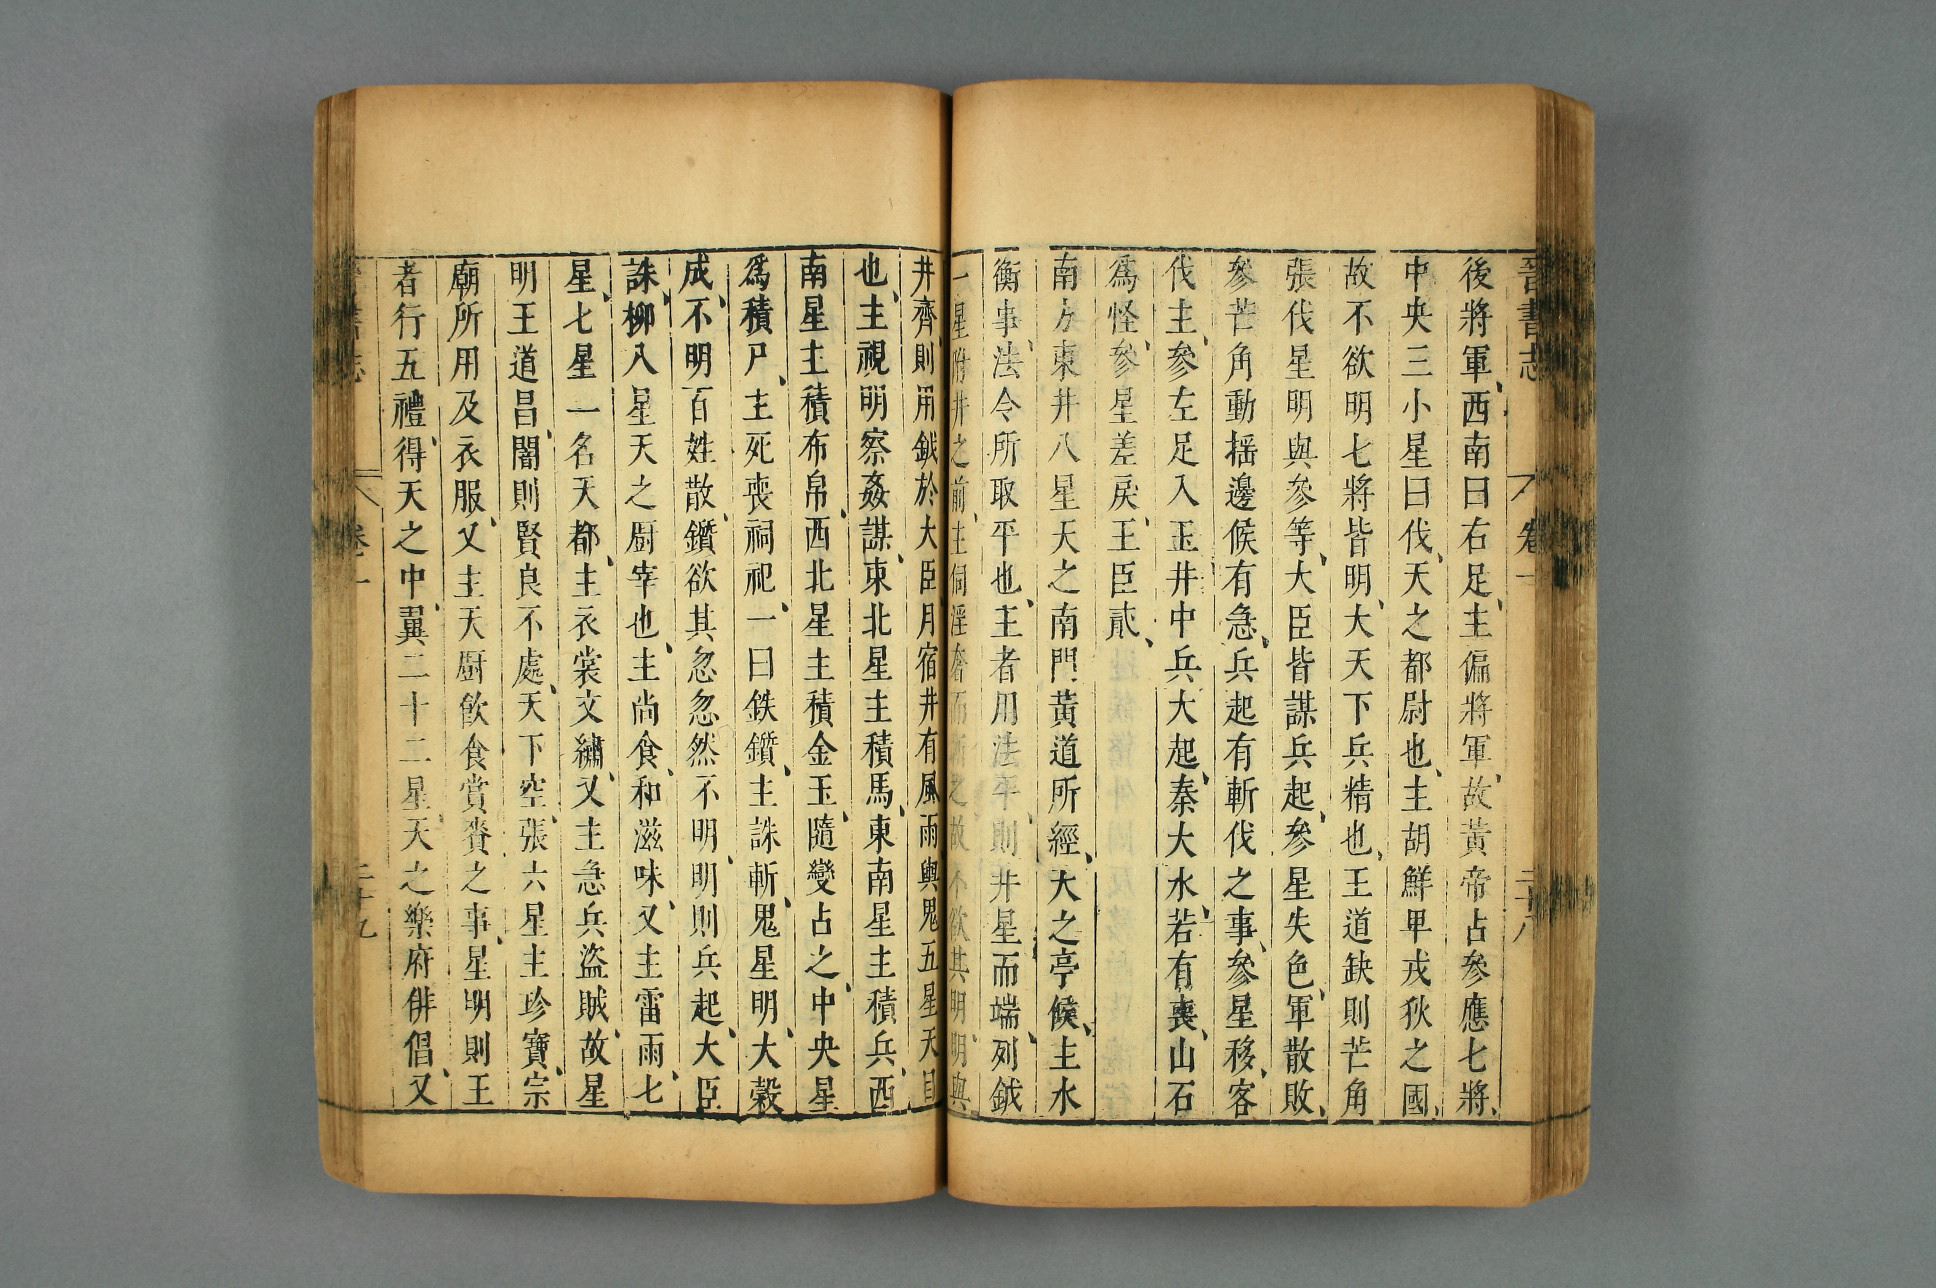 晉書志 卷一 二十八
後將軍、西南曰右足、主偏將軍、故黃帝占參應七將、
中央三小星曰伐、天之都尉也、主胡鮮卑戎狄之國、
故不欲明七將皆明、大天下兵精也、王道缺則芒角
張伐星明與參等、大臣皆謀兵起、參星失色、軍散敗、
參芒角動搖邊候有急、兵起有斬伐之事、參星移、客
伐主、參左足入玉井中兵大起、秦大水、若有喪、山石
爲怪、參星差戾、王臣貳、
南方東井八星天之南門黃道所經、天之亭候、主水
衡事、法令所取平也、主者用法平、則井星而端、列鉞
一星附井之前、主伺淫奢而斬之故不欲其明、明與
井齊、則用鉞於大臣、月宿井有風雨輿鬼五星天目
也、主視明察姦謀、東北星主積馬、東南星主積兵、西
南星主積布帛、西北星主積金玉、隨變占之、中央星
爲積尸、主死喪祠祀、一曰鈇鑕、主誅斬、鬼星明、大穀
成、不明百姓散、鑕欲其忽忽然不明、明則兵起、大臣
誅、柳八星天之廚宰也、主尚食、和滋味、又主雷雨、七
星、七星一名天都、主衣裳文繡、又主急兵盜賊、故星
明王道昌、闇則賢良不處、天下空、張六星主珍寶、宗
廟所用及衣服、又主天廚飮食賞賚之事、星明則王
者行五禮、得天之中、翼二十二星、天之樂府俳倡、又
書志 卷一 二十九